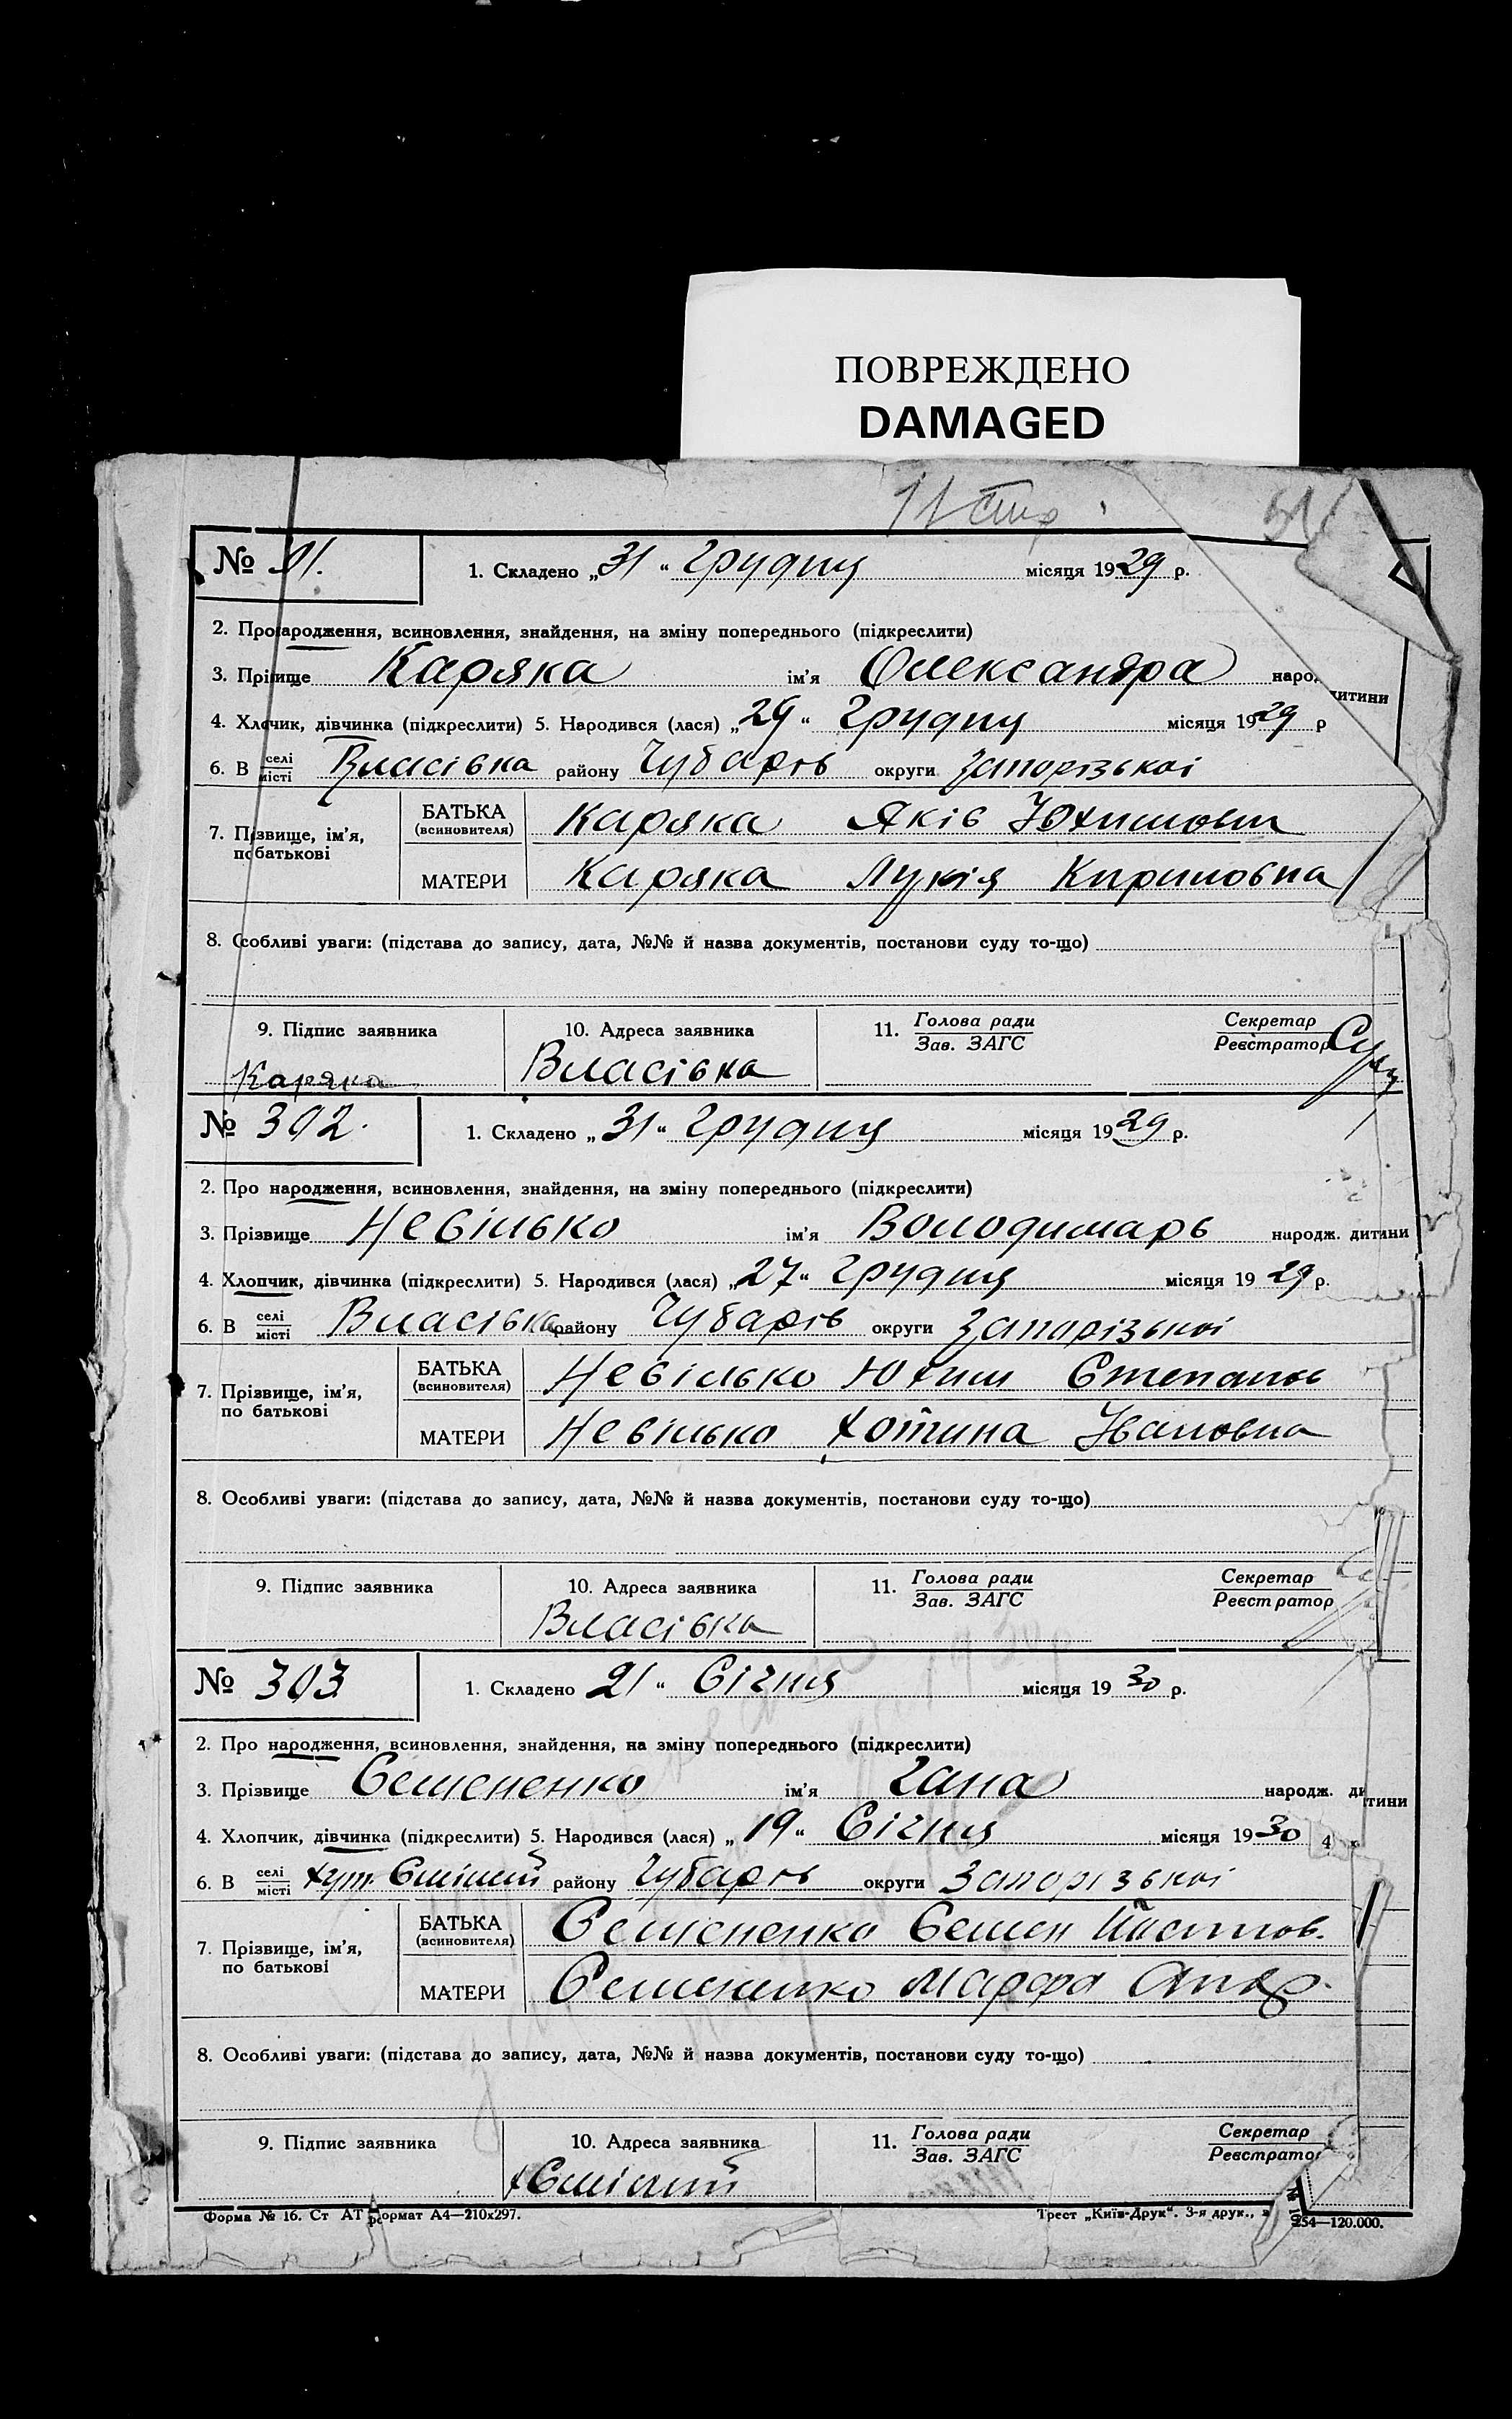 ПОВРЕЖДЕНО
DAMAGED
11 стор
№ 01.
1. Складено „31“ Грудня місяця 1929 р.
2. Про народження, всиновлення, знайдення, на зміну попереднього (підкреслити)
3. Прізвище Каряка ім’я Олександра народ. дитини
4. Хлопчик, дівчинка (підкреслити) 5. Народився (лася) „29“ Грудня місяця 1929 р
6. В селі/місті Власівка району Чубарів округи Запорізькоі
7. Прізвище, ім’я, по батькові БАТЬКА (всиновителя) Каряка Яків Юхимович
МАТЕРИ Каряка Лукія Кириловна
8. Особливі уваги: (підстава до запису, дата, №№ й назва документів, постанови суду то-що)
9. Підпис заявника 10. Адреса заявника 11. Голова ради/Зав. ЗАГС Секретар/Реєстратор
Каряка Власівка
№ 302.
1. Складено „31“ Грудня місяця 1929 р.
2. Про народження, всиновлення, знайдення, на зміну попереднього (підкреслити)
3. Прізвище Невілько ім’я Володимарь народж. дитини
4. Хлопчик, дівчинка (підкреслити) 5. Народився (лася) „27“ Грудня місяця 19 29 р.
6. В селі/місті Власівка району Чубарів округи Запорізькоі
7. Прізвище, ім’я, по батькові БАТЬКА (всиновителя) Невілько Юхим Степанов
МАТЕРИ Невілько Хотина Івановна
8. Особливі уваги: (підстава до запису, дата, №№ й назва документів, постанови суду то-що)
9. Підпис заявника 10. Адреса заявника 11. Голова ради/Зав. ЗАГС Секретар/Реєстратор
Власівка
№ 303
1. Складено 21“ Січня місяця 19 30 р.
2. Про народження, всиновлення, знайдення, на зміну попереднього (підкреслити)
3. Прізвище Семененко ім’я Гана народж. дитини
4. Хлопчик, дівчинка (підкреслити) 5. Народився (лася) „19“ Січня місяця 1930
6. В селі/місті хут. Смілий району Чубарів округи Запорізькоі
7. Прізвище, ім’я, по батькові БАТЬКА (всиновителя) Семененко Семен
МАТЕРИ Семененко Марфа Андр.
8. Особливі уваги: (підстава до запису, дата, №№ й назва документів, постанови суду то-що)
9. Підпис заявника 10. Адреса заявника 11. Голова ради/Зав. ЗАГС Секретар/Реєстратор
х Смілий
Форма № 16. Ст АТ Формат А4—210х297. Трест „Київ-Друк“. 3-я друк., 254—120.000.